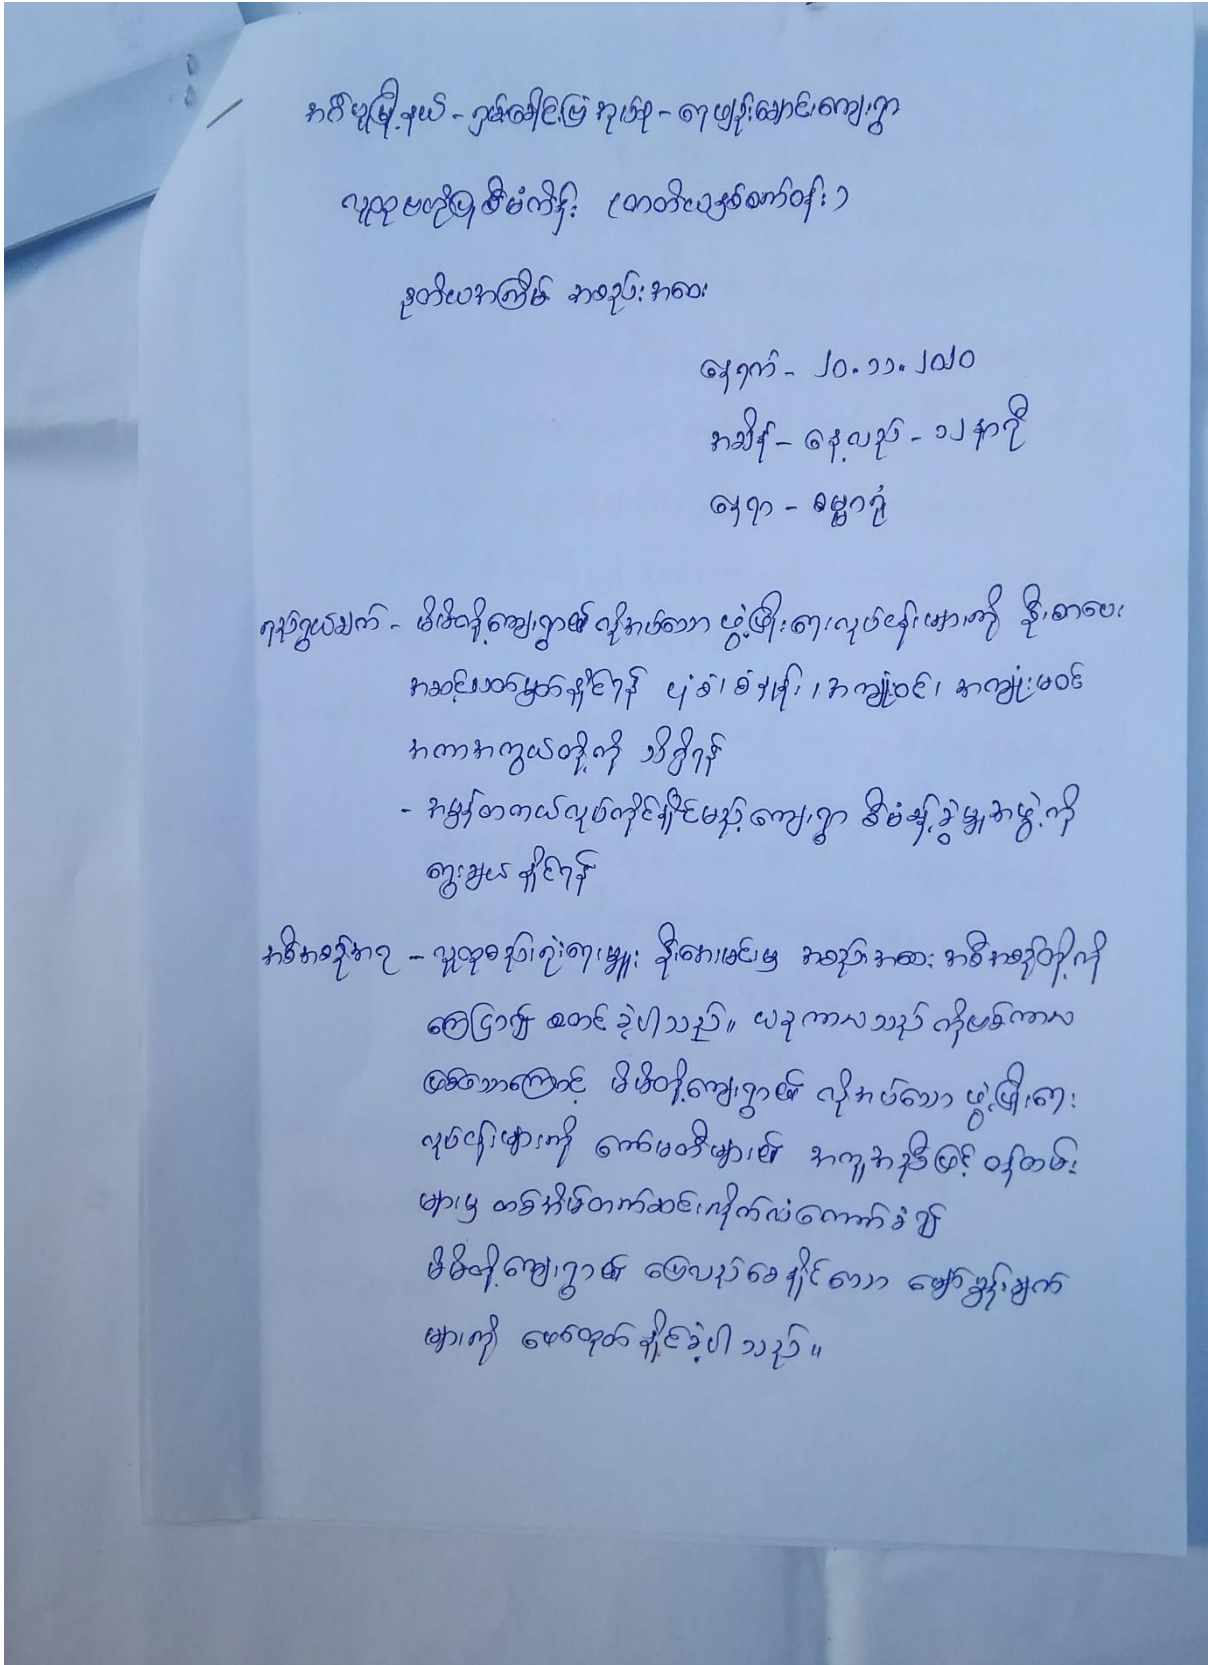 အင်္ဂပူမြို့နယ် - ရှမ်းခေါင်းမြဲအုပ်စု - ရေဖျဉ်းချောင်းကျေးရွာ
လူထုဗဟိုပြုစီမံကိန်း (တတိယနှစ်စက်ဝန်း)
ဒုတိယအကြိမ် အစည်းအဝေး
နေ့ရက် - ၂၀.၁၁.၂၀၂၀
အချိန် - နေ့လည် - ၁၂ နာရီ
နေရာ - ဓမ္မာရုံ
ရည်ရွယ်ချက် - မိမိတို့ကျေးရွာ၏ လိုအပ်သော ဖွံ့ဖြိုးရေးလုပ်ငန်းများကို ဦးစားပေး
အဆင့်သတ်မှတ်နိုင်ရန် ပုံစံ၊ စံနှုန်း၊ အကျုံးဝင်၊ အကျုံးမဝင်
အကာအကွယ်တို့ကို သိရှိရန်
- အမှန်တကယ်လုပ်ကိုင်နိုင်မည့်ကျေးရွာ စီမံခန့်ခွဲမှုအဖွဲ့ကို
ရွေးချယ်နိုင်ရန်
အစီအစဉ်အရ - လူထုစည်းရုံးရေးမှူး ဦးအေးမင်းမှ အစည်းအဝေး အစီအစဉ်တို့ကို
ကြေငြာ၍ စတင်ခဲ့ပါသည်။ ယခုကာလသည် ကိုဗစ်ကာလ
ဖြစ်သောကြောင့် မိမိတို့ကျေးရွာ၏ လိုအပ်သော ဖွံ့ဖြိုးရေး
လုပ်ငန်းများကို ကော်မတီများ၏ အကူအညီဖြင့် ဝန်ထမ်း
များမှ တစ်အိမ်တက်ဆင်းလိုက်လံကောက်ခံ၍
မိမိတို့ကျေးရွာ၏ ပြေလည်စေနိုင်သော မျှော်မှန်းချက်
များကို ဖော်ထုတ်နိုင်ခဲ့ပါသည်။